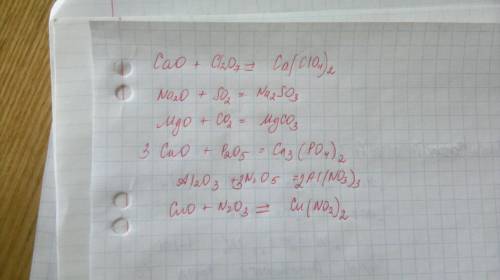 CaO + Cl2O7 = Ca(ClO4)2
Na2O + SO2 = Na2SO3
MgO + CO2 = MgCO3
3 CaO + P2O5 = Ca3(PO4)2
Al2O3 +3N2O5 =2Al(NO3)3
CuO + N2O3 = Cu(NO3)2